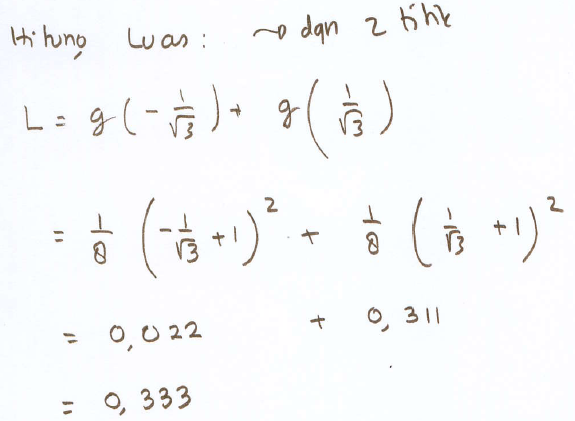 Hitung Luas : → dgn 2 titik
L = g(-1/√3) + g(1/√3)
= 1/8 (-1/√3 + 1)² + 1/8 (1/√3 + 1)²
= 0,022 + 0,311
= 0,333